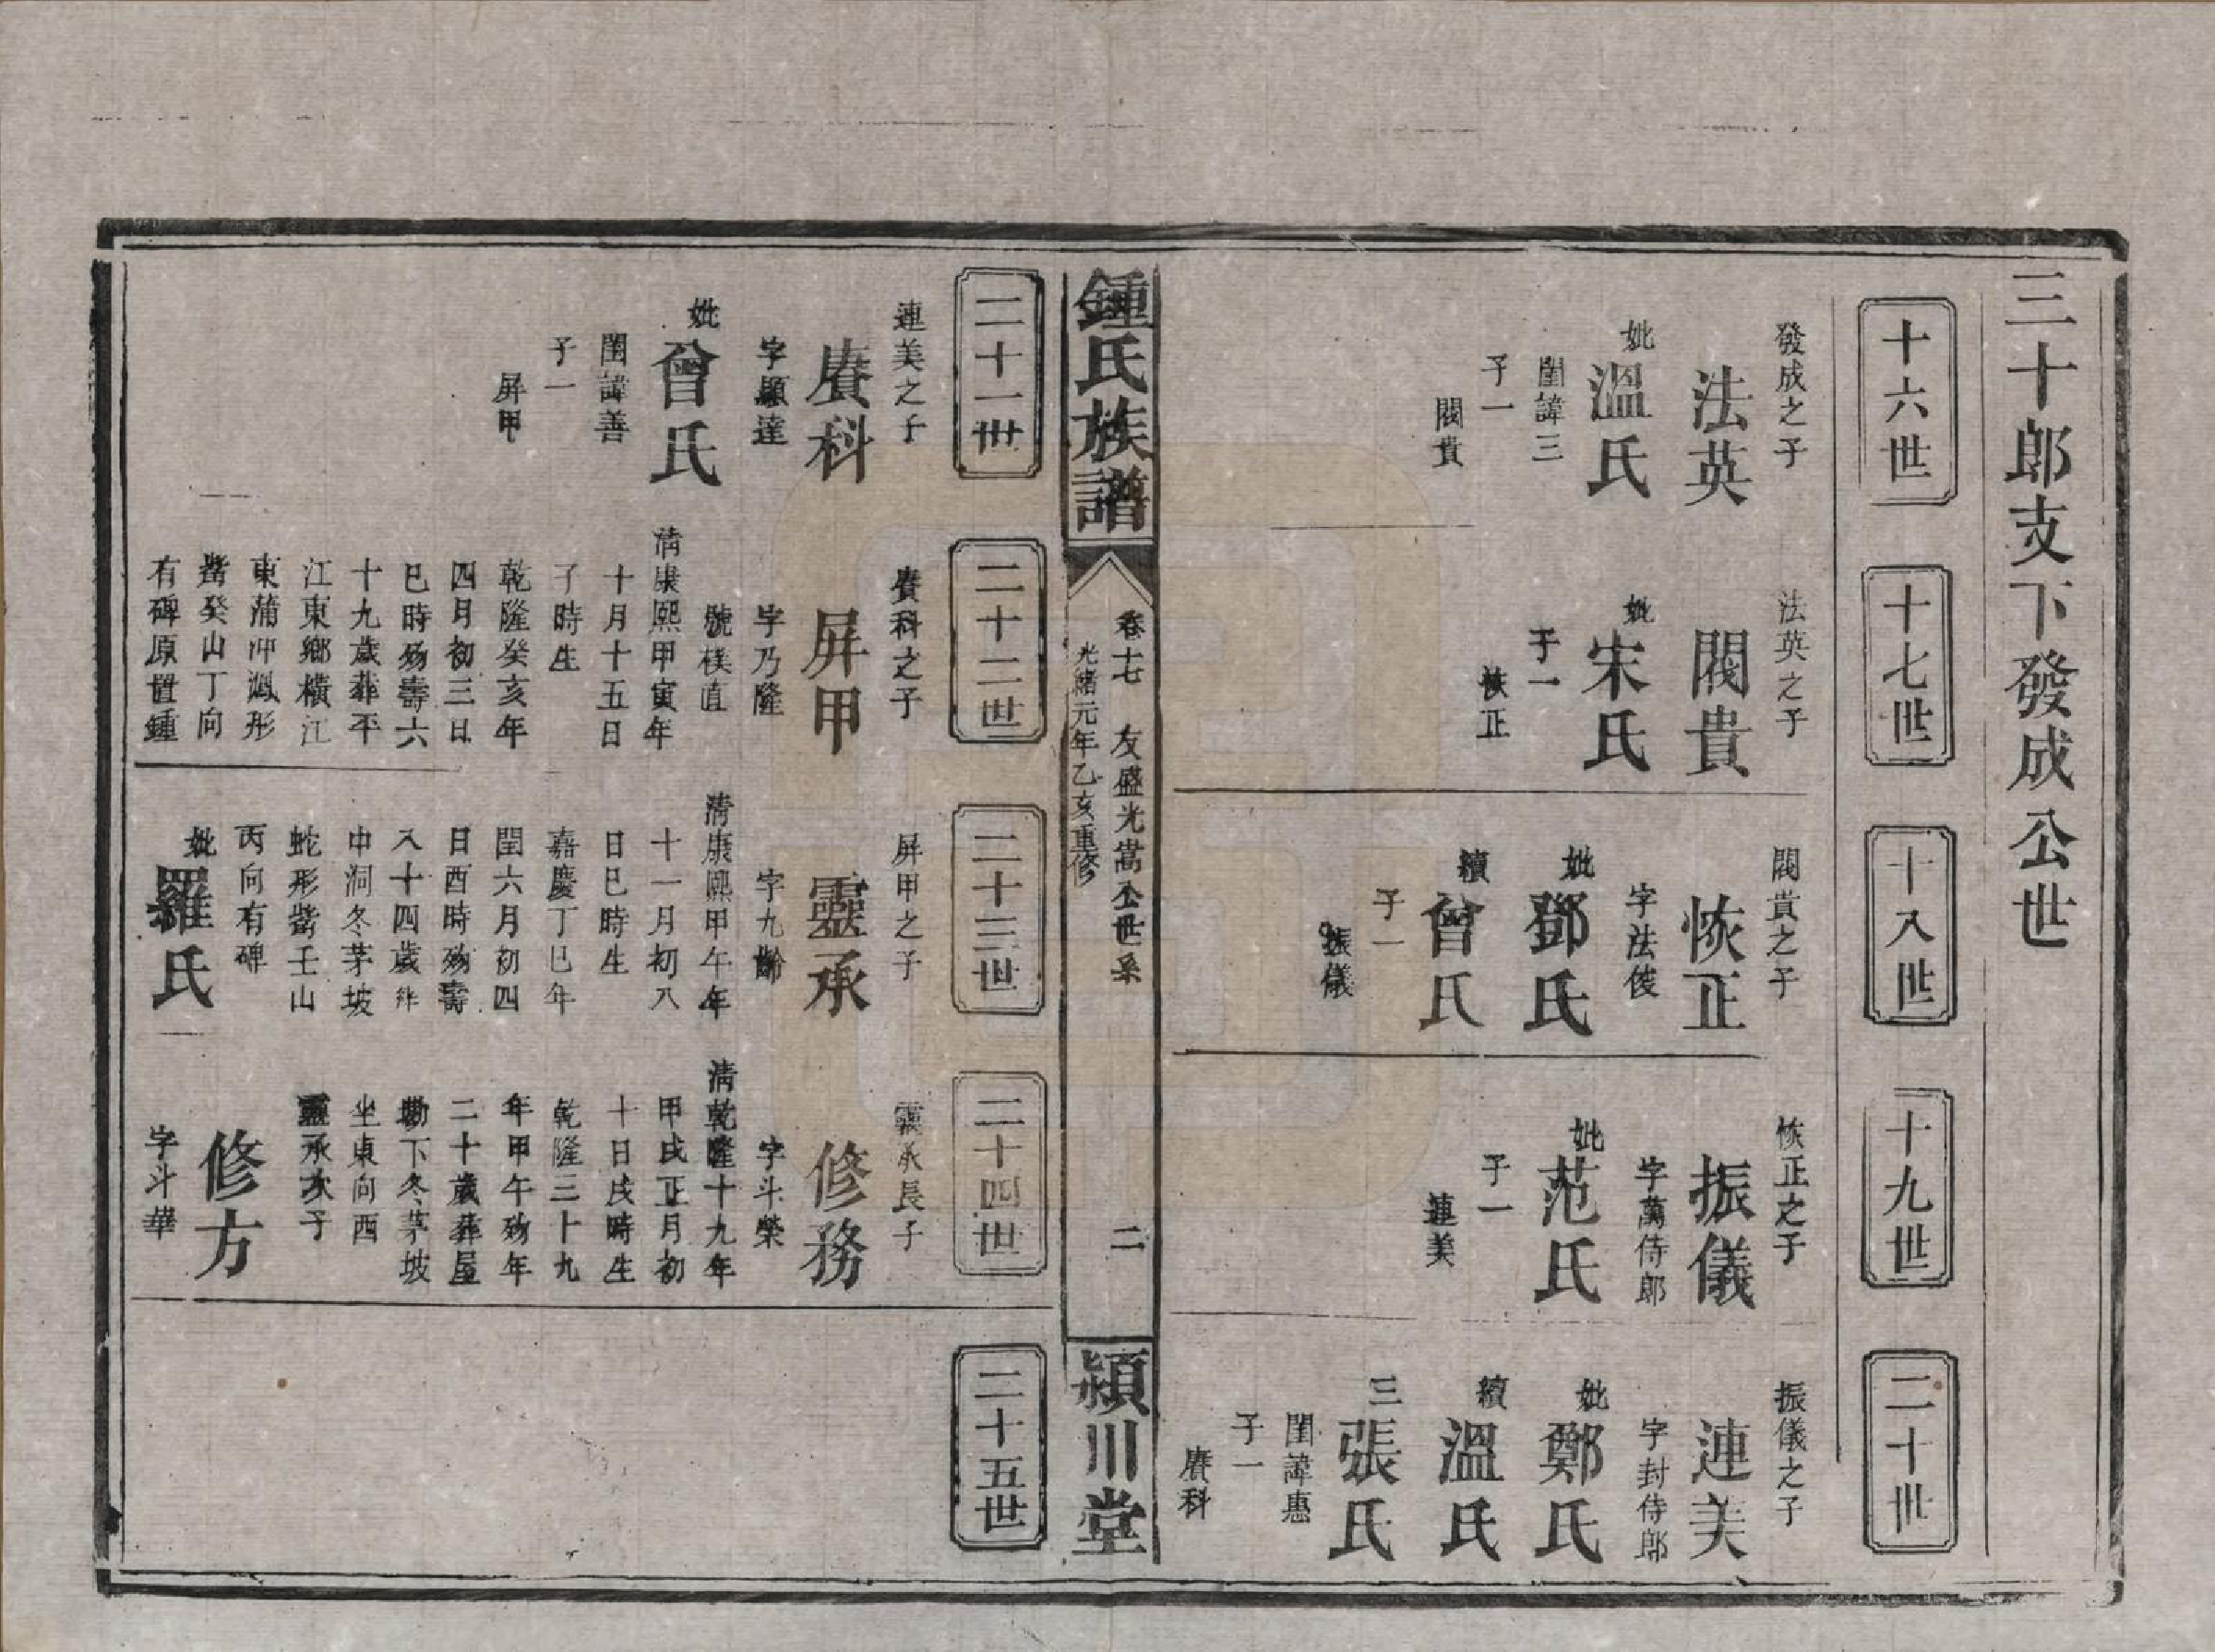 三十郎支下發成公世
十六世
發成之子
法英
妣
溫氏
閨諱三
子一
閥貴
十七世
法英之子
閥貴
妣
宋氏
子一
恢正
十八世
閥貴之子
恢正
字法俊
妣
鄧氏
續
曾氏
子一
振儀
十九世
恢正之子
振儀
字萬侍郎
妣
范氏
子一
連美
二十世
振儀之子
連美
字封侍郎
妣
鄭氏
續
溫氏
三
張氏
閨諱惠
子一
賡科
鍾氏族譜
卷十七
友盛光嵩公世系
光緒元年乙亥重修
二
潁川堂
二十一世
連美之子
賡科
字顯達
妣
曾氏
閨諱善
子一
屏甲
二十二世
賡科之子
屏甲
字乃隆
號樸直
清康熙甲寅年
十月十五日
子時生
乾隆癸亥年
四月初三日
巳時歿壽六
十九歲葬平
江東鄉橫江
東蒲冲鳳形
嘴癸山丁向
有碑原置鍾
二十三世
屏甲之子
靈承
字九齡
清康熙甲午年
十一月初八
日巳時生
嘉慶丁巳年
閏六月初四
日酉時歿壽
八十四歲葬
中洞冬茅坡
蛇形嘴壬山
丙向有碑
妣
羅氏
二十四世
靈承長子
修務
字斗榮
清乾隆十九年
甲戌正月初
十日戌時生
乾隆三十九
年甲午歿年
二十歲葬屋
坳下冬茅坡
坐東向西
靈承次子
修方
字斗華
二十五世